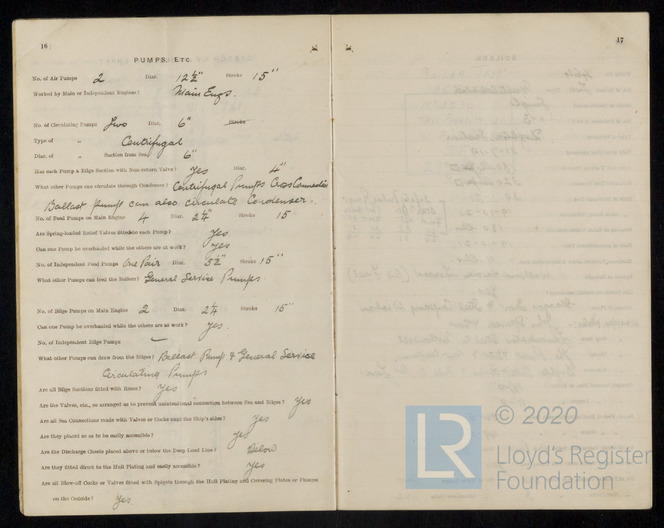 16
PUMPS, ETC.
No. of Air Pumps 2 Diar. 12½" Stroke 15"
Worked by Main or Independent Engines? Main Engs.
No. of Circulating Pumps Two Diar. 6" Stroke
Type of " Centrifugal
Diar. of " Suction from Sea 6"
Has each Pump a Bilge Suction with Non-return Valve? Yes Diar. 4"
What other Pumps can circulate through Condenser? Centrifugal Pumps Cross Connected
Ballast pumps can also circulate Condenser.
No. of Feed Pumps on Main Engine 4 Diar. 2¼" Stroke 15
Are Spring-loaded Relief Valves fitted to each Pump? Yes
Can one Pump be overhauled while the others are at work? Yes
No. of Independent Feed Pumps One Pair Diar. Stroke 15"
What other Pumps can feed the Boilers? General Service Pumps
No. of Bilge Pumps on Main Engine 2 Diar. 2¼ Stroke 15"
Can one Pump be overhauled while the others are at work? Yes.
No. of Independent Bilge Pumps —
What other Pumps can draw from the Bilges? Ballast Pump & General Service
Circulating Pumps
Are all Bilge Suctions fitted with Roses? Yes
Are the Valves, etc., so arranged as to prevent unintentional connection between Sea and Bilges? Yes
Are all Sea Connections made with Valves or Cocks next the Ship's sides? Yes
Are they placed so as to be easily accessible? Yes
Are the Discharge Chests placed above or below the Deep Load Line? Below
Are they fitted direct to the Hull Plating and easily accessible? Yes
Are all Blow-off Cocks or Valves fitted with Spigots through the Hull Plating and Covering Plates or Flanges
on the Outside? Yes
17
© 2020
LR
Lloyd's Register
Foundation